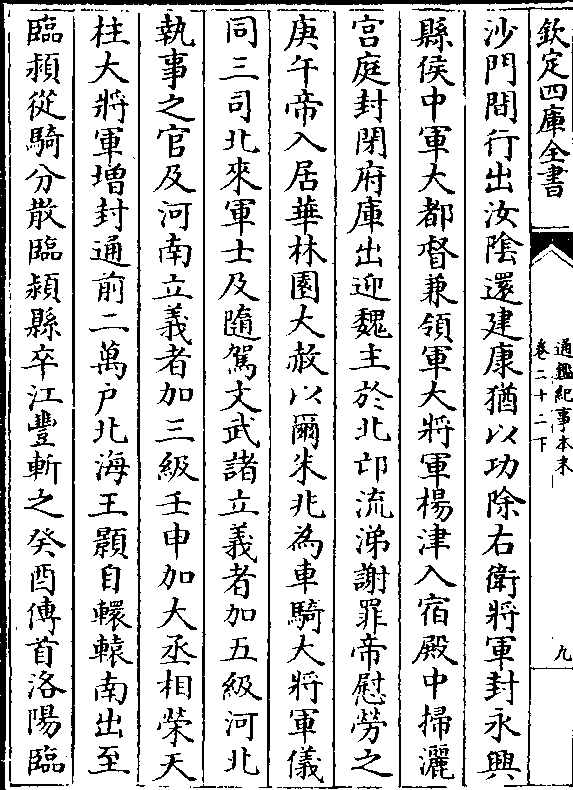 欽定四庫全書
通鑑紀事本末
卷二十二下
九
沙門間行出汝陰還建康猶以功除右衛將軍封永興
縣侯中軍大都督兼領軍大將軍楊津入宿殿中掃灑
宫庭封閉府庫出迎魏主於北邙流涕謝罪帝慰勞之
庚午帝入居華林園大赦以爾朱兆為車騎大將軍儀
同三司北來軍士及隨駕文武諸立義者加五級河北
執事之官及河南立義者加三級壬申加大丞相榮天
柱大將軍增封通前二萬户北海王顥自轘轅南出至
臨潁從騎分散臨潁縣卒江豐斬之癸酉傳首洛陽臨